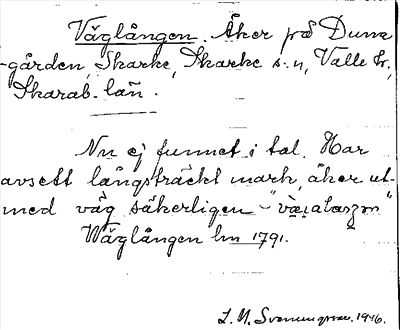 Väglången. Åker på Duna
-gården, Skarke, Skarke s:n, Valle hd,
Skarab. län.
Nu ej funnet i tal. Har
avsett långsträckt mark, åker ut-
med väg, säkerligen
Wäglången hm 1791.
1946.